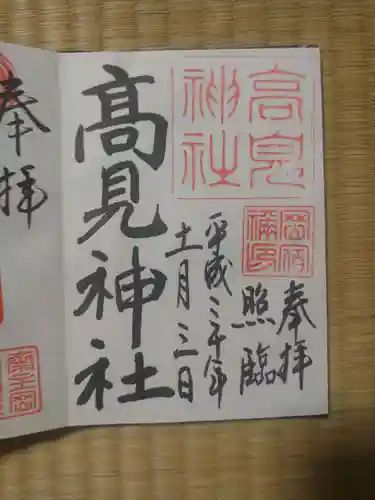 高見
神社
奉拝
照臨
平成三十年
十一月三日
高見神社
奉拝